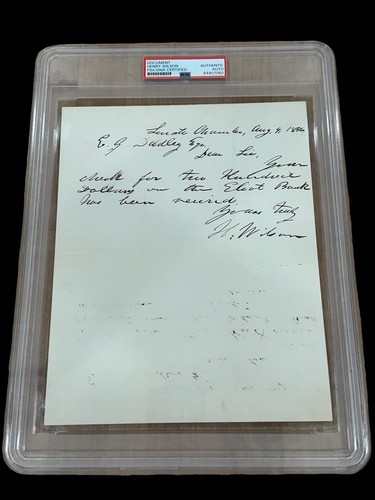 DOCUMENT
HENRY WILSON
PSA/DNA CERTIFIED
AUTHENTIC
AUTO
Senate Chamber, Aug. 9,
E. G Dudley Esq.
Dear Sir,
Your
check for two Hundred
Dollars on the Eliot Bank
has been received
Yours truly
H. Wilson